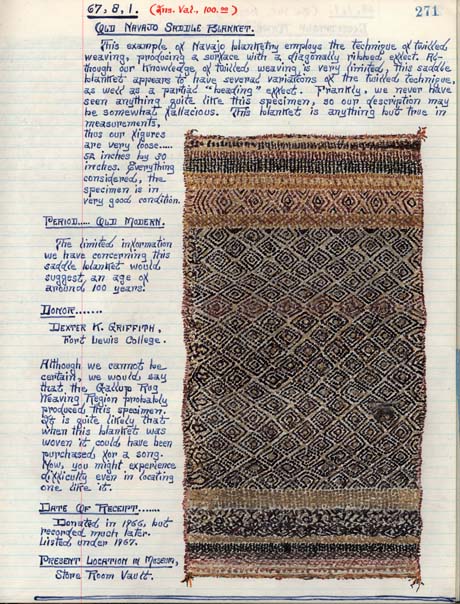 67, 8, 1. (Ins. Val., 100.00) 271
Old Navajo Saddle Blanket.
This example of Navajo blanketry employs the technique of twilled
weaving, producing a surface with a diagonally ribbed effect. Al-
though our knowledge of twilled weaving is very limited, this saddle
blanket appears to have several variations of the twilled technique,
as well as a partial "beading" effect. Frankly, we never have
seen anything quite like this specimen, so our description may
be somewhat fallacious. This blanket is anything but true in
measurements,
thus our figures
are very loose.....
52 inches by 30
inches. Everything
considered, the
specimen is in
very good condition.
Period..... Old Modern.
The limited information
we have concerning this
saddle blanket would
suggest an age of
around 100 years.
Donor.......
Dexter K. Griffith,
Fort Lewis College.
Although we cannot be
certain, we would say
that the Gallup Rug
Weaving Region probably
produced this specimen.
It is quite likely that
when this blanket was
woven it could have been
purchased for a song.
Now, you might experience
difficulty even in locating
one like it.
Date Of Receipt.......
Donated in 1966, but
recorded much later.
Listed under 1967.
Present Location in Museum,
Store Room Vault.